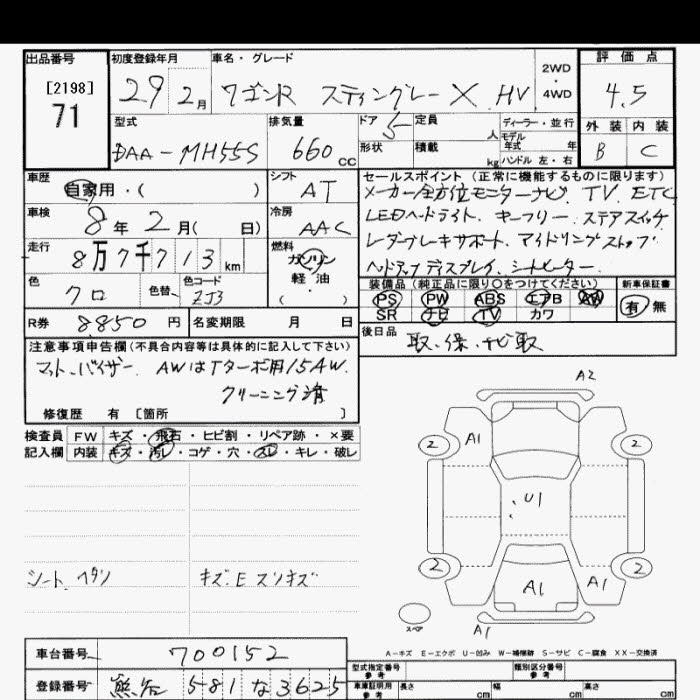 出品番号 [2198] 71
初度登録年月 29 2月
車名・グレード ワゴンR スティングレー X HV
2WD・4WD
評価点 4.5
外装 B 内装 C
型式 DAA-MH55S
排気量 660cc
ドア 5 定員 人
形状 積載 kg
ディーラー・並行
モデル年式 年式
ハンドル 左・右
車歴 自家用・( )
シフト AT
車検 8年2月( 日)
冷房 AAC
走行 8万7千713km
燃料 ガソリン 軽・油 ・( )
色 クロ 色替 色コード ZJ3
R券 8850円 名変期限 月 日
セールスポイント(正常に機能するものに限ります)
メーカー全方位モニターナビ、TV、ETC
LEDヘッドライト、キーフリー、ステアスイッチ
レーダーブレーキサポート、アイドリングストップ
ヘッドアップディスプレイ、シートヒーター
装備品(純正品に限り〇をつけてください) 新車保証書
PS PW ABS エアB AW 有・無
SR ナビ TV カワ
後日品 取、保、ナビ取
注意事項申告欄(不具合内容等は具体的に記入して下さい)
マット、バイザー AWはTターボ用15AW.
クリーニング済
修復歴 有[箇所 ]
検査員 FW キズ・飛石・ヒビ割・リペア跡・×要
記入欄 内装 キズ・汚レ・コゲ・穴・スレ・キレ・破レ
シート、ヘタリ
キズ、E スリキズ
A2
2 A1 2
U1
2 A1 A1 2
スペア A1
A-キズ E-エクボ U-凹み W-補修跡 S-サビ C-腐食 XX-交換済
車台番号 700152
登録番号 熊谷 581 な 3625
型式指定番号 参考 類別区分番号 参考
車庫証明用 参考 長さ cm 幅 cm 高さ cm